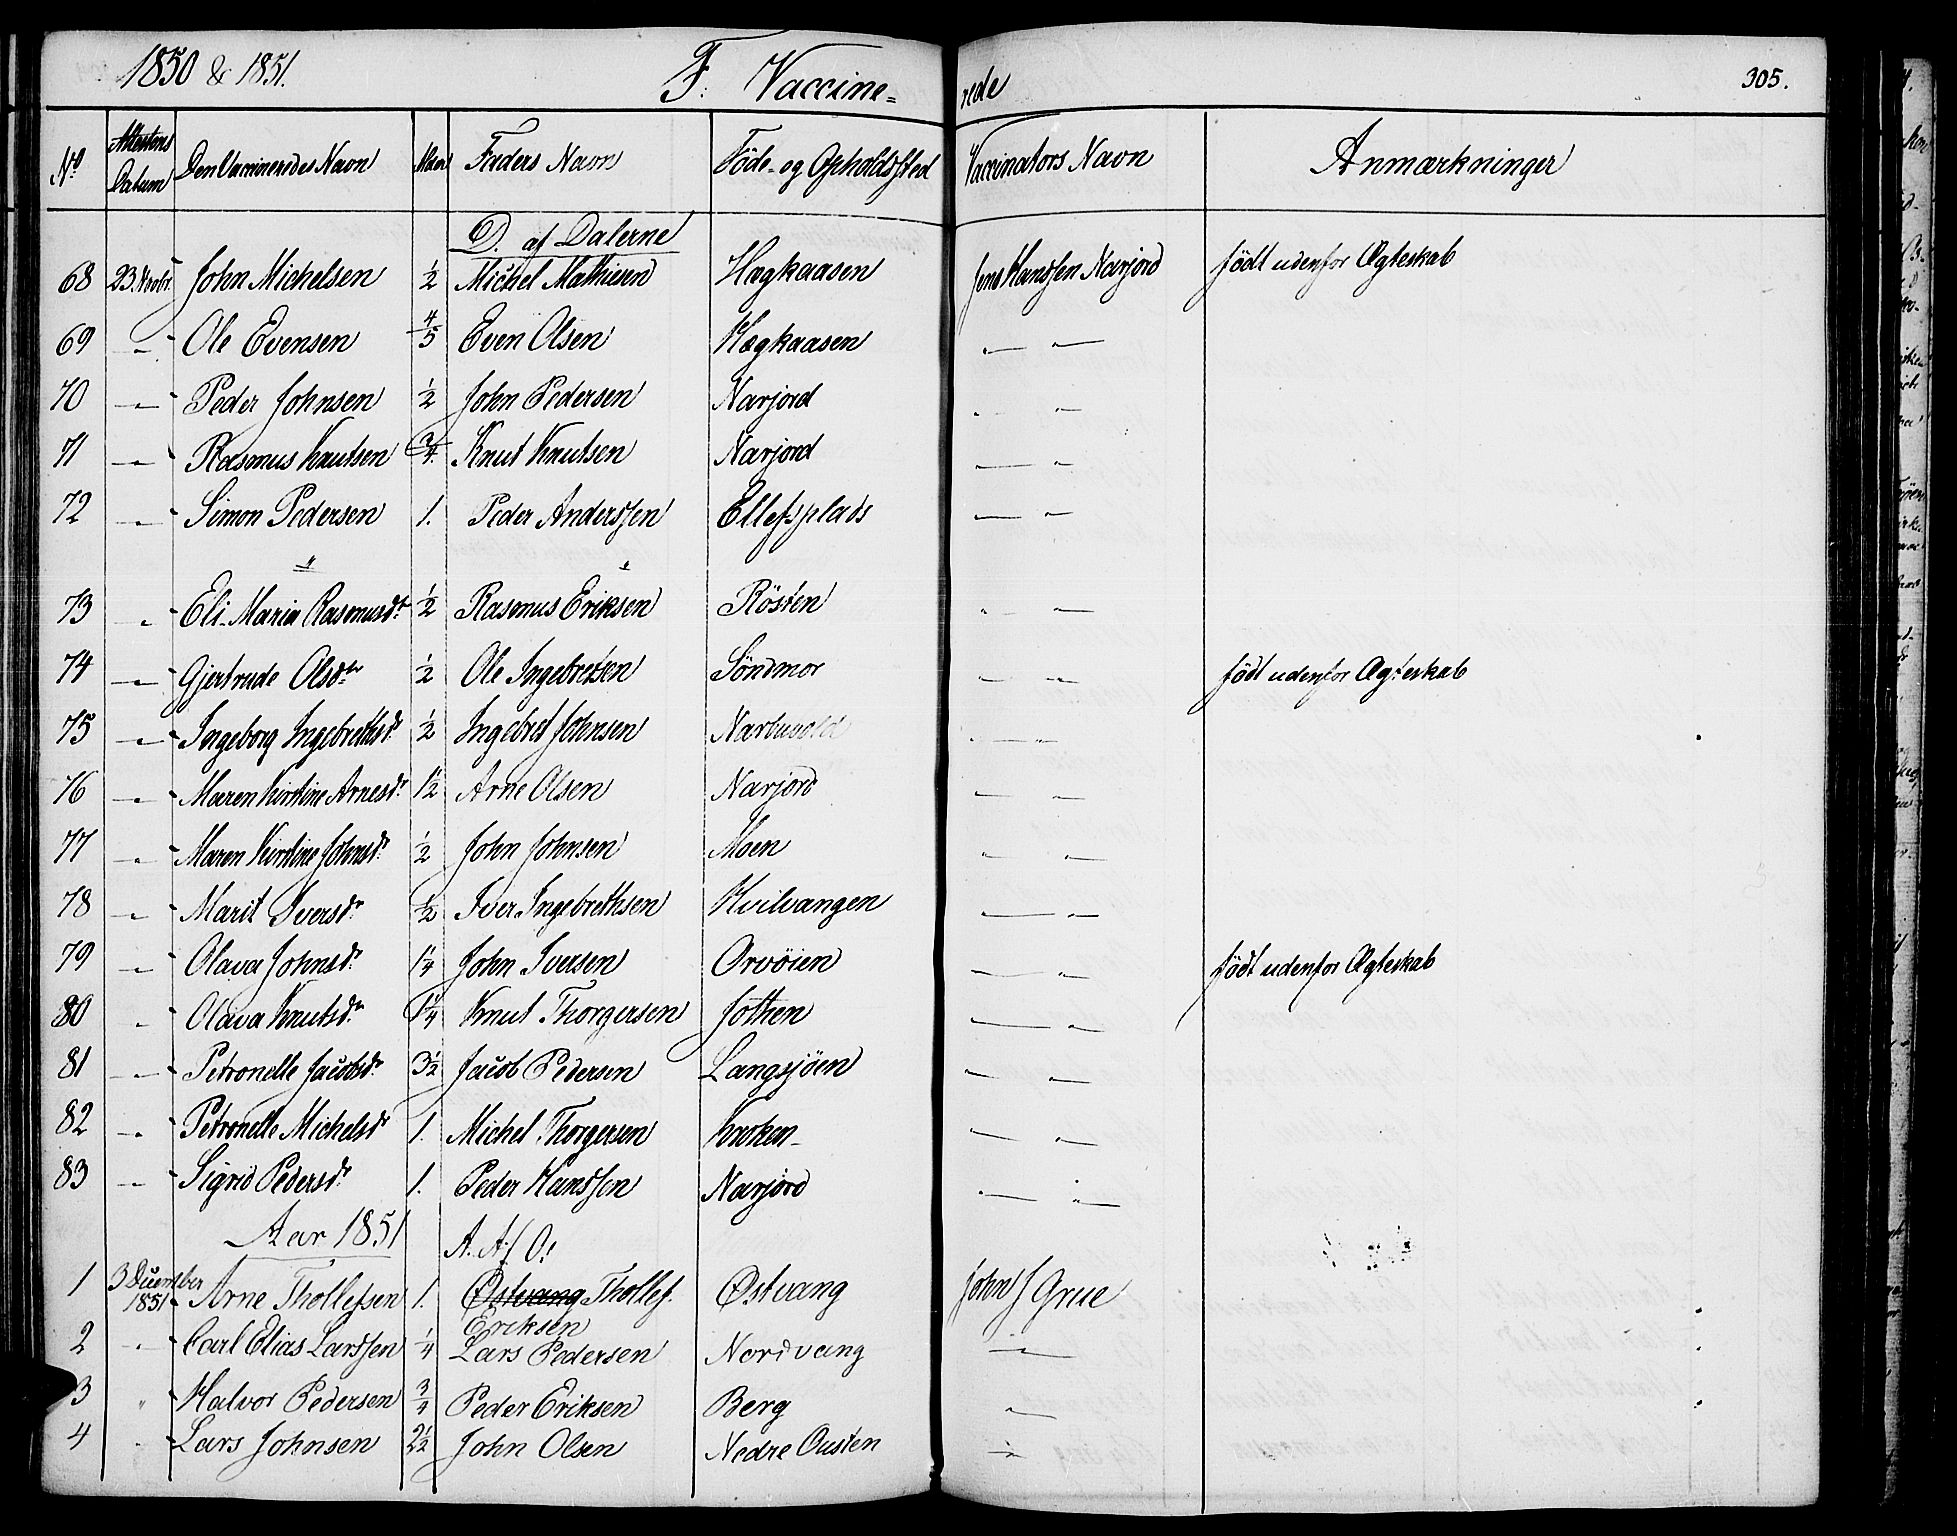 1850 & 1851. F. Vaccine=rede 305.
No Attestens Datum Den Vaccineredes Navn Alder Faders Navn Føde- og Opholdssted Vaccinators Navn Anmærkninger
D. af Dalerne
68 23 Novbr. John Michelsen 1/2 Michel Mathiesen Hægkaasen Jens Hanssen Narjord født udenfor Ægteskab
69 -„- Ole Evensen 4/5 Even Olsen Hægkaasen -„-
70 -„- Peder Johnsen 1/2 John Pedersen Narjord -„-
71 -„- Rasmus Knutsen 3/4. Knut Knutsen Narjord -„-
72 -„- Simon Pedersen 1. Peder Anderssen Ellefsplads -„-
" "
73 -„- Eli Maria Rasmusdr. 1/2 Rasmus Eriksen Røsten -„-
74 -„- Gjertrude Olsdtr 1/2 Ole Ingebretsen Söndmor -„- født udenfor Ægteskab
75 -„- Ingeborg Ingebrethsdr. 1/2 Ingebret Johnsen Narbuvold -„-
76 -„- Maren Kirstine Arnesdr. 1 1/2 Arne Olsen Narjord -„-
77 -„- Maren Kirstine Johnsdr. 1/2 John Johnsen Moen -„-
78 -„- Marit Iversdr. 1/2 Iver Ingebrethsen Hvilvangen -„-
79 -„- Olava Johnsdr. 1 1/4 John Iversen Orvøien -„- født udenfor Ægteskab
80 -„- Olava Knutsdr. 1 1/4 Knut Thorgersen Jotten -„-
81 -„- Petronelle Jacobsdr. 3 1/2 Jacob Pedersen Langsjøen -„-
82 -„- Petronelle Michelsdr 1. Michel Thorgersen Kroken -„-
83 -„- Sigrid Pedersdr. 1. Peder Hanssen Narjord -„-
Aar 1851 A. Af O.
1 3 December 1851 Arne Thollefsen 1. Østvang Thollef. Eriksen Østvang John J Grue
2 -„- Carl Elias Larssen 1/4 Lars Pedersen Nordvang -„-
3 „ Halvor Pedersen 3/4 Peder Eriksen Berg -„-
4 „ Lars Johnsen 2 1/2 John Olsen Nedre Ousten -„-